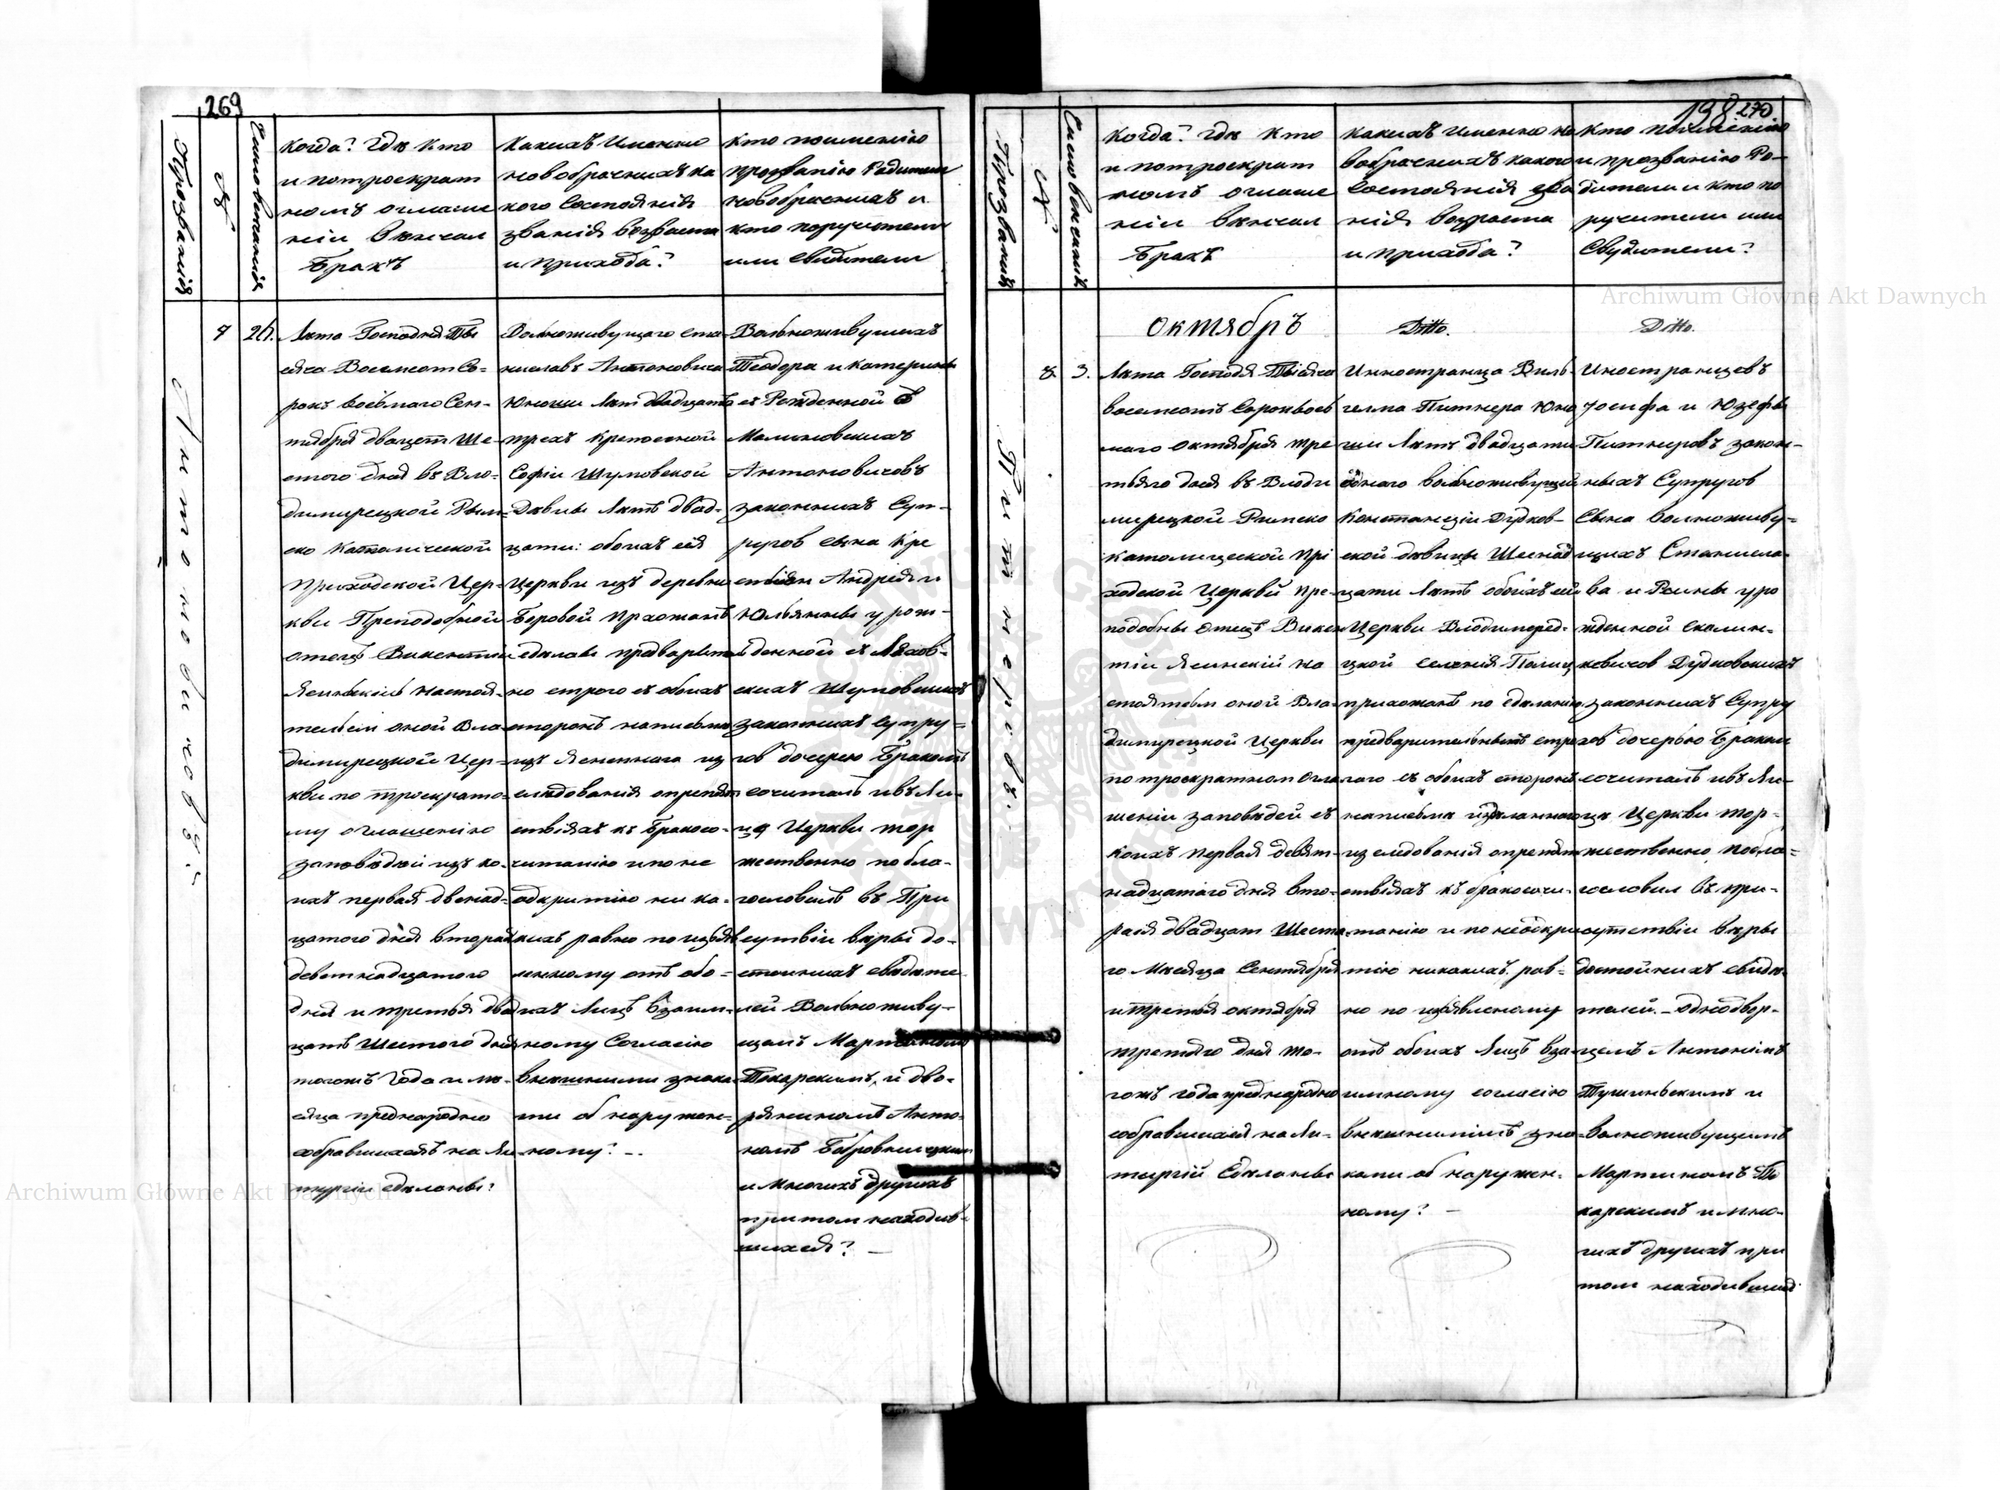 269
Прозванія
№
Синовенчанія
Когда? Где кто
и потроекрат
номъ оглаше
ніи венчал
Бракъ
Какихъ Именно
новобрачныхъ ка
кого Состоянія
званія возраста
и прихода?
Кто поименно
прозванію Родители
новобрачныхъ и
кто поручители
или Свидители
Антоновичовъ
7
26.
Лѣта Господня Тыс
сяча Восемсот Со-
рокъ восьмаго Сен-
тября двацет Ше-
стого дня въ Вло-
димирецкой Рым-
ско Католической
Приходской Цер-
кви Преподобной
отецъ Викентій
Ясинскій Настоя-
тельем оной Вла
димирецкой Цер-
кви по троекрато-
му оглашенію
заповѣдей изъ ко-
ихъ первая двенад-
цатого дня вторая
деветнадцатого
дня и третья два
цать Шестого дня
тогожъ года и мѣ-
сяца преднародно
собравшихся на Ли
тургіи сделаны?
Вольноживущаго Ста
ниславъ Антоновича
Юноши Лѣт двадцать
трехъ Крепосной
Софіи Шуповской
Девицы Лѣтъ двад-
цати: обоихъ сія
Церкви изъ деревни
Боровой Прихожанъ
сделавъ предварител
но строго съ обоихъ
сторонъ написьма
изъ Ясненнаго из
следованія опрепят
ствіяхъ къ Бракосо-
читанію и по не
одкритію ни ка-
кихъ равно по изъяв
ленному отъ обо-
ихъ Лицъ взаим-
ному Согласію
внешними знака
ми об наружен-
ному? -
Вольноживущихъ
Теодора и Катерины
съ Рожденной
Малиновскихъ
Антоновичовъ
законныхъ Суп-
ругов сына Кре
стьян Андрея и
Юльянны урож-
денной съ Ляхов-
скихъ Шуповскихъ
законныхъ Супру=
гов дочерю Бракомъ
сочиталъ и въ Ли-
це Церкви тор
жественно побла-
гословилъ въ При
сутвіи веры до-
стойныхъ свидите
лей Вольноживу-
щамъ Мартиномъ
Токарскимъ, и дво-
ряниномъ Анто-
номъ Бобровницким
и многихъ другихъ
притом находив-
шихся? -
198
270
Прозванія
№
Синовенчанія
Когда? Где кто
и потроекрат
номъ оглаше
ніи венчал
Бракъ
Какихъ Именно но
вобрачныхъ какого
Состоянія зва
нія возраста
и прихода?
Кто поимѣнно
и прозванію Ро-
дители и кто по
ручители или
Свидители?
Октябрь
Ditto.
Ditto.
Питнеровъ.
8.
3.
Лѣта Господя Тысяча
восемсотъ Сорокъвось
маго Октября тре
тьяго дня въ Влоди
мирецкой Римско
католицеской При
ходской Церкви Пре-
подобны Отецъ Викен
тіи Ясинскій На
стоятелем оной Вла
димирецкой Церкви
по троекратном огла
шеніи заповедей съ
коихъ первая девят-
надцатаго дня вто-
рая двадцат Шеста
го Месяца Сентября
и третья октября
третяго дня то-
гожъ года преднародно
собравшихся на Ли-
тургій Сделаны
Иностранца Виль-
гелма Питнера Юно
ши Летъ двадцати
однаго вольноживущей
Констанціи Дудков-
ской девицы Шеснад
цати Летъ обоихъ сій
Церкви Влодимеред-
цкой селенія Полиц
прихожанъ по сделанію
предварительнымъ стро
гаго съ обоихъ сторонъ
написьма изделаннаго
изследованія опрепят
ствіяхъ къ бракосочи-
танію и по неодкри
тію никакихъ рав-
но по изъявленому
отъ обоихъ Лицъ вза-
имному согласію
внешниміи зна-
ками об наружен-
ному? -
Иностранцевъ
Іосифа и Юзефы
Питнеровъ закон-
ныхъ Супругов
Сына волноживу=
щихъ Станисла-
ва и Роины уро
жденной Скалин-
кевичов Дудковскихъ
законныхъ Супру
гов дочерью Браком
сочиталъ и въ Ли-
це Церкви тор-
жественно побла=
гословил въ при-
сутствіи веры
достойныхъ свиде-
телей. - Однодвор-
цемъ Антонімъ
Тушинскимъ и
волноживущимъ
Мартиномъ То
карскимъ и мно-
гихъ другихъ при
том находивших
Archiwum Główne Akt Dawnych
Archiwum Główne Akt Dawnych